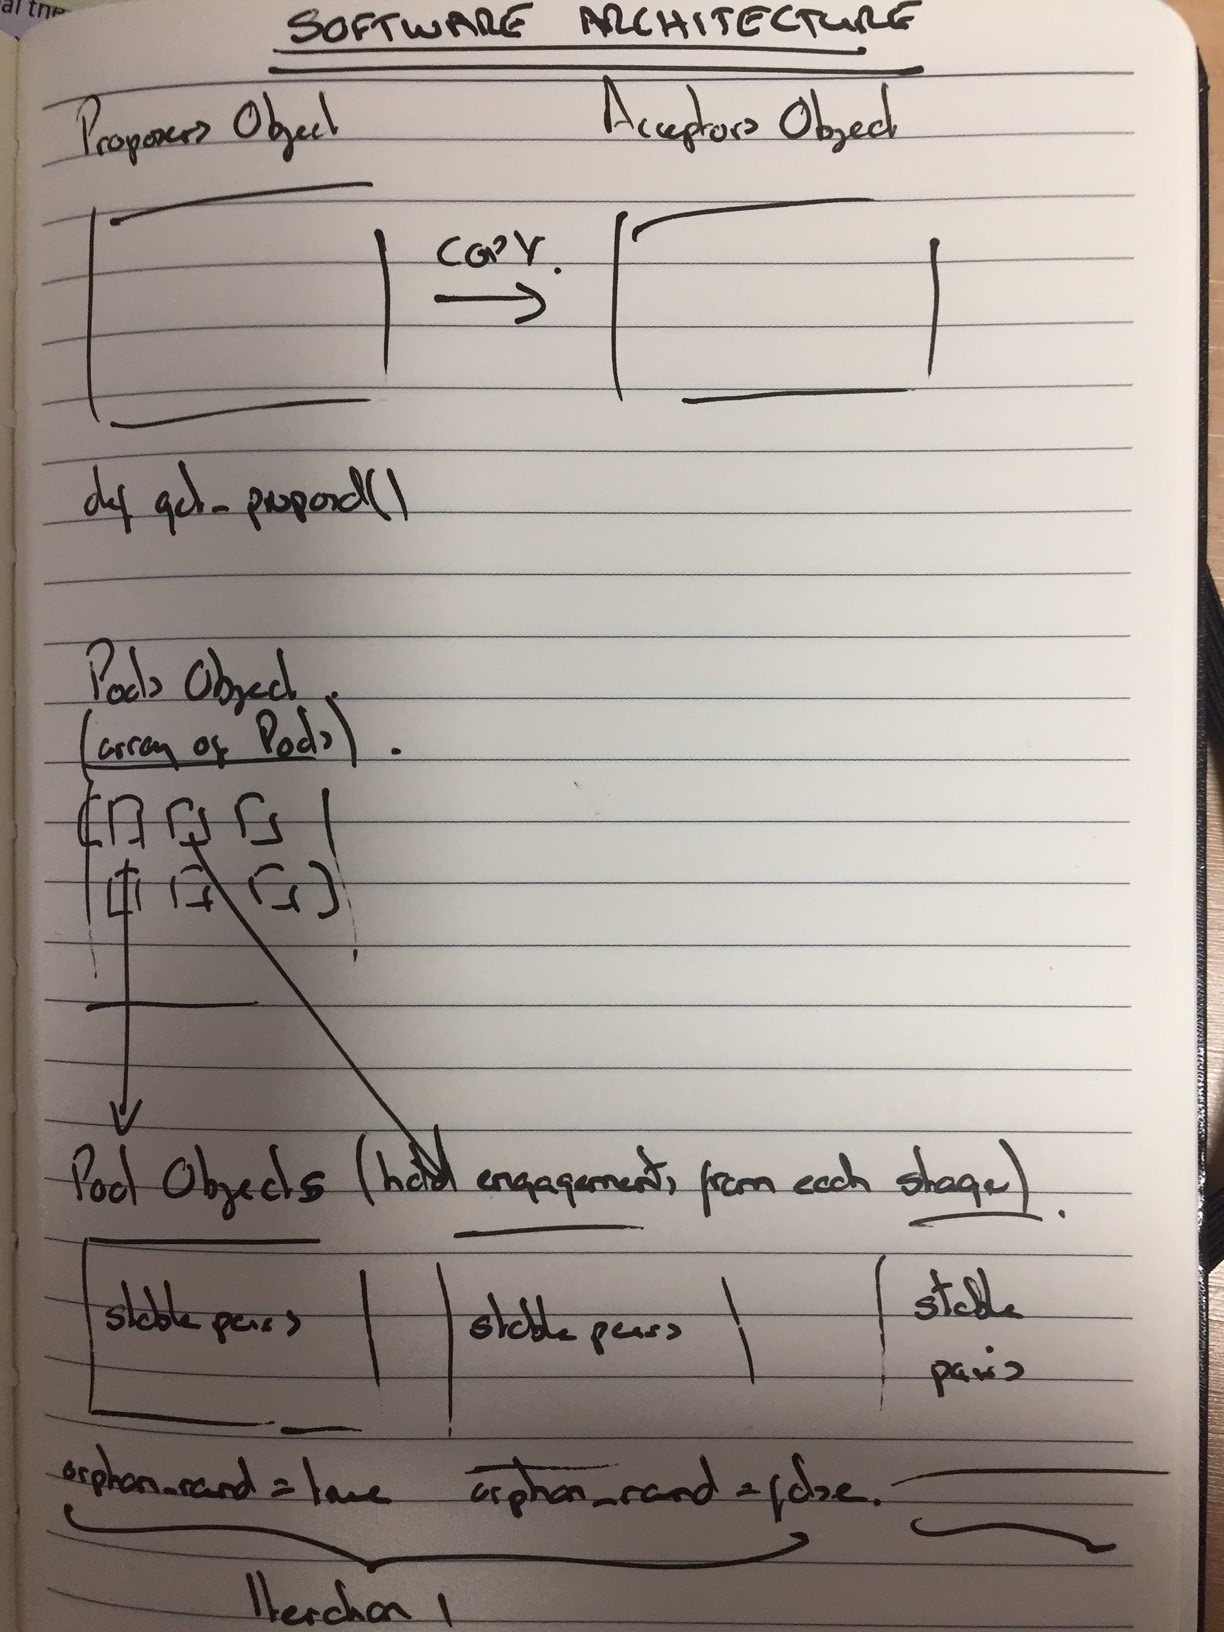 SOFTWARE ARCHITECTURE
Proposers Object
Acceptors Object
COPY.
def get_proposal()
Pods Object.
(array of Pods).
Pod Objects (hold engagements from each stage).
stable pairs
stable pairs
stable
pairs
orphan_rand = true
orphan_rand = false.
Iteration 1